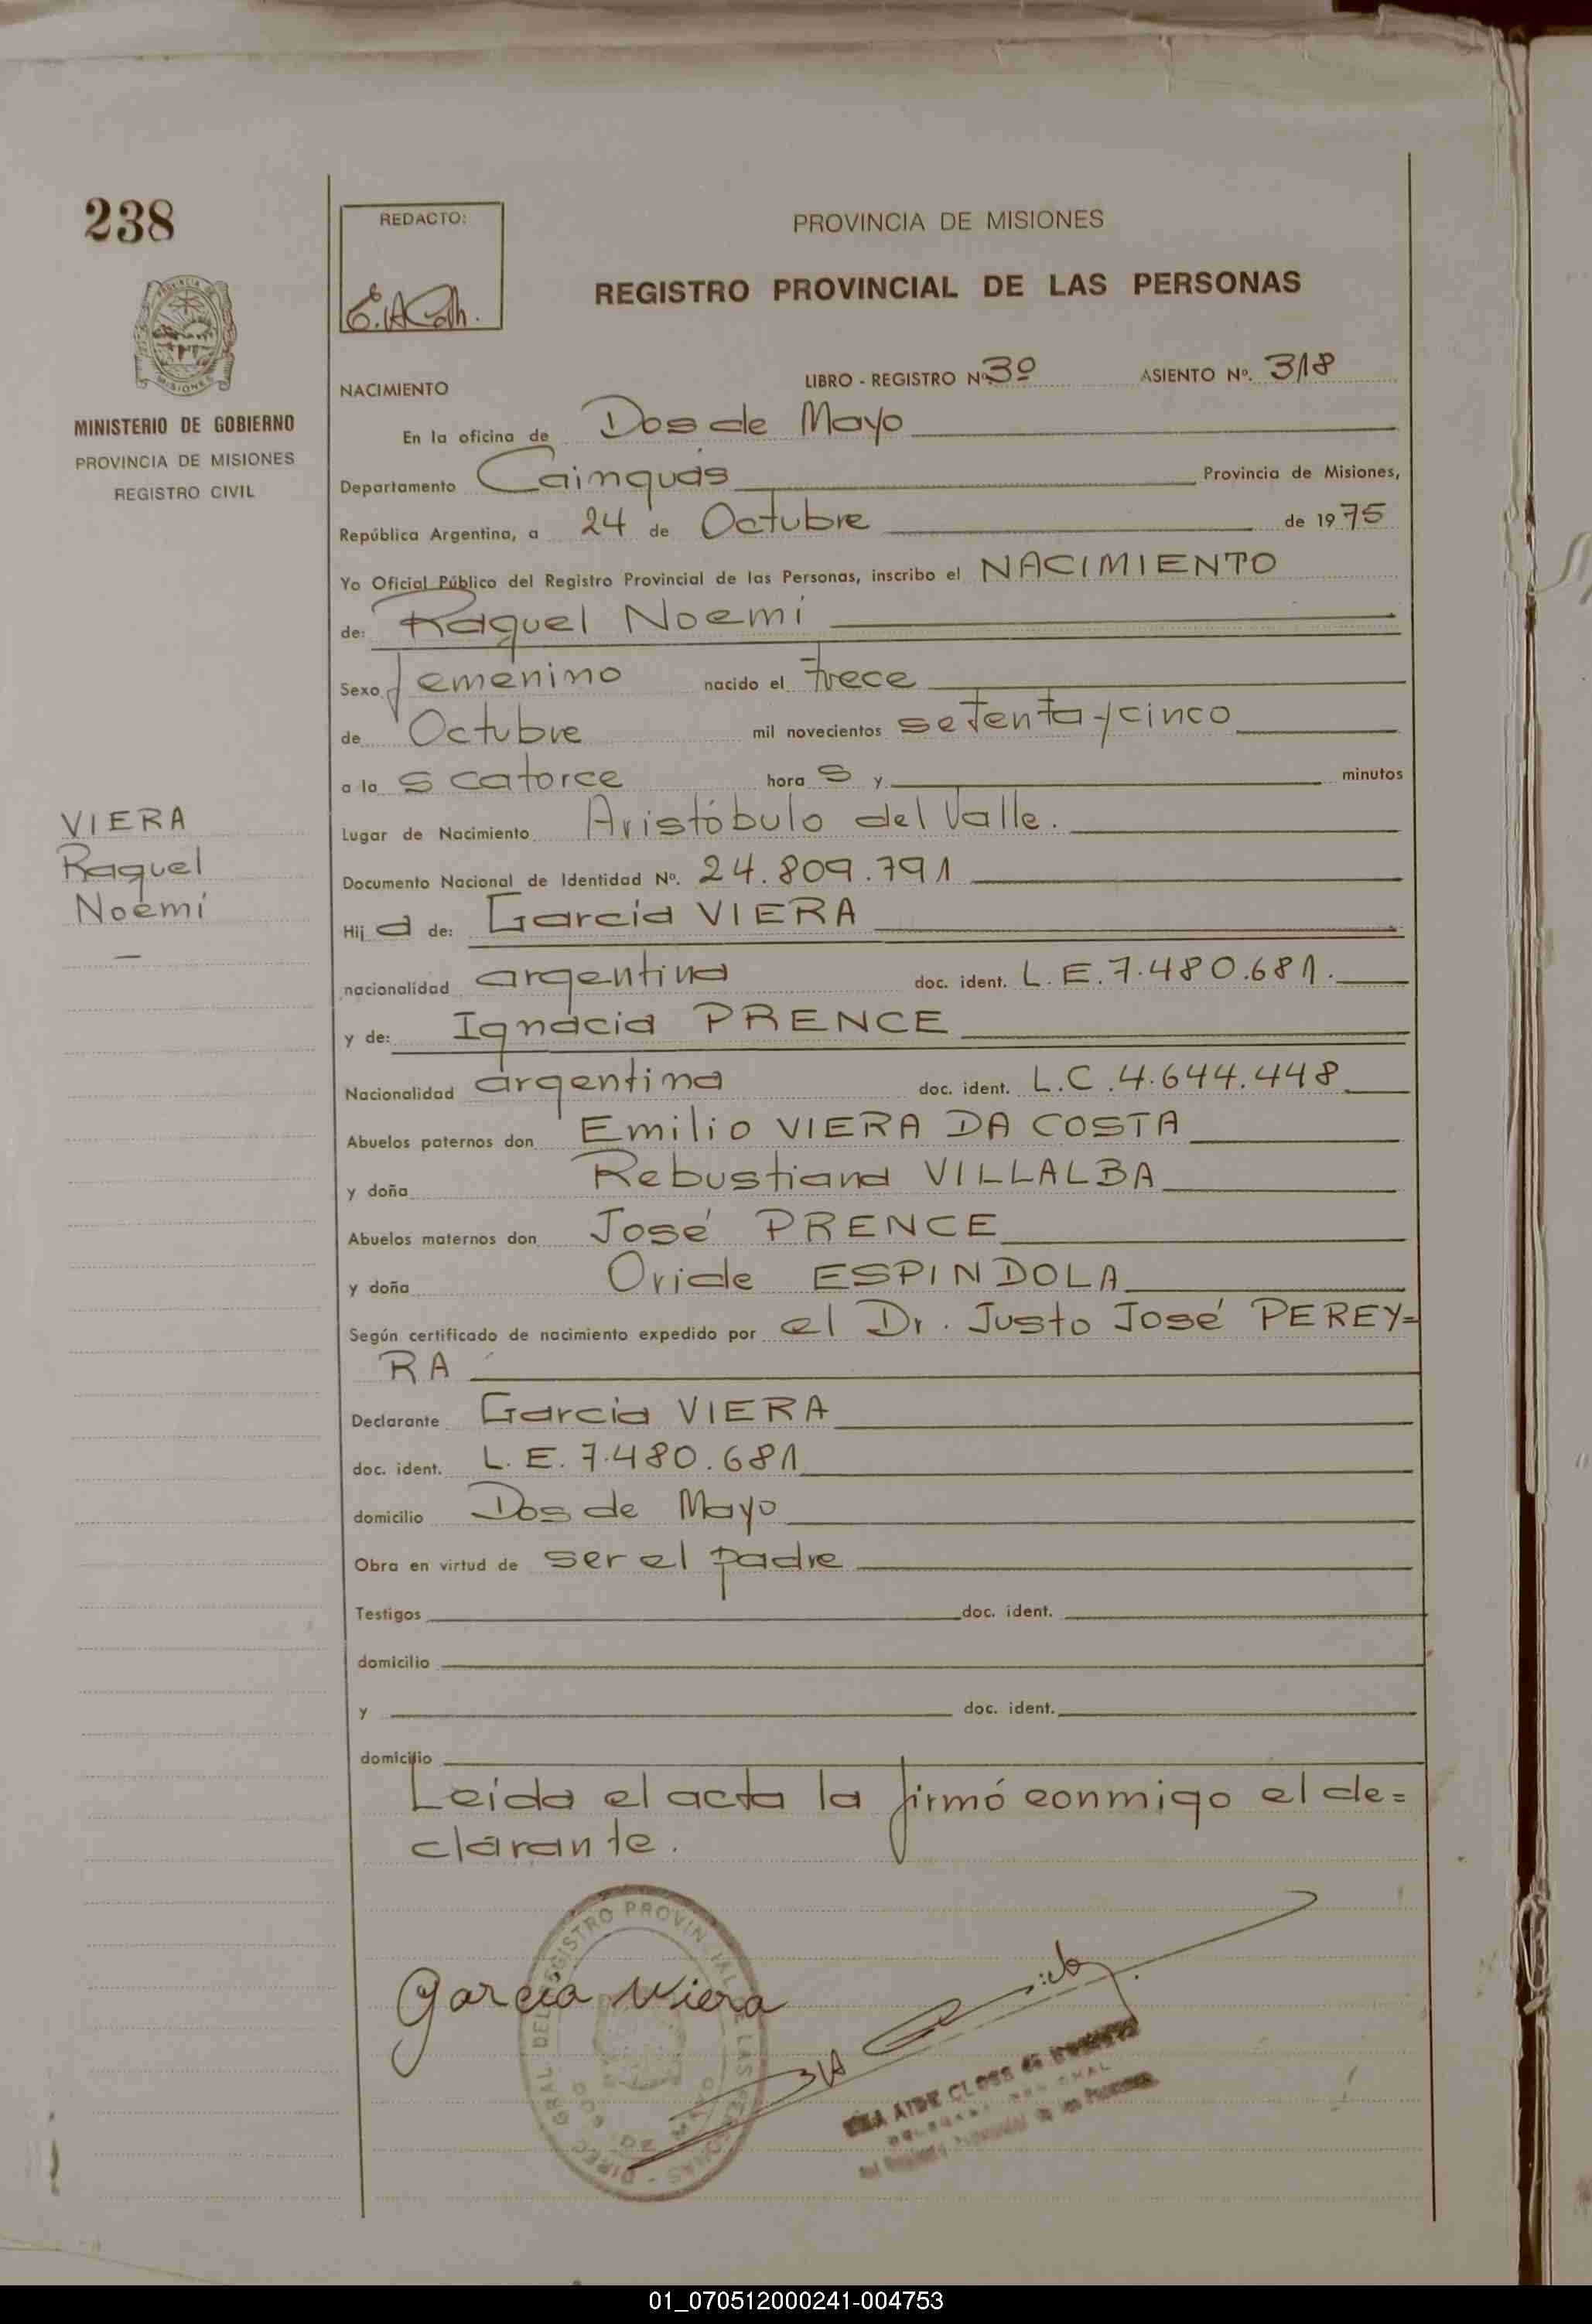 238
REDACTO:
PROVINCIA DE MISIONES
REGISTRO PROVINCIAL DE LAS PERSONAS
MISIONES
MINISTERIO DE GOBIERNO
PROVINCIA DE MISIONES
REGISTRO CIVIL
VIERA
Raquel
Noemí
NACIMIENTO LIBRO - REGISTRO Nº 3º ASIENTO Nº. 318
En la oficina de Dos de Mayo
Departamento Cainguás Provincia de Misiones,
República Argentina, a 24 de Octubre de 1975
Yo Oficial Público del Registro Provincial de las Personas, inscribo el NACIMIENTO
de: Raquel Noemí
Sexo femenino nacido el trece
de Octubre mil novecientos setenta y cinco
a la s catorce hora s y minutos
Lugar de Nacimiento Aristóbulo del Valle.
Documento Nacional de Identidad Nº. 24.809.791
Hij a de: Garcia VIERA
nacionalidad argentina doc. ident. L.E. 7.480.681.
y de: Ignacia PRENCE
Nacionalidad argentina doc. ident. L.C. 4.644.448
Abuelos paternos don Emilio VIERA DA COSTA
y doña Rebustiana VILLALBA
Abuelos maternos don José PRENCE
y doña Oride ESPINDOLA
Según certificado de nacimiento expedido por el Dr. Justo José PEREY=
RA
Declarante Garcia VIERA
doc. ident. L.E. 7.480.681
domicilio Dos de Mayo
Obra en virtud de ser el padre
Testigos doc. ident.
domicilio
y doc. ident.
domicilio
Leida el acta la firmó conmigo el de=
clarante.
Garcia Viera
DIREC. GRAL DEL REGISTRO PROVINCIAL DE LAS PERSONAS
AIDE CLOSS de
01_070512000241-004753